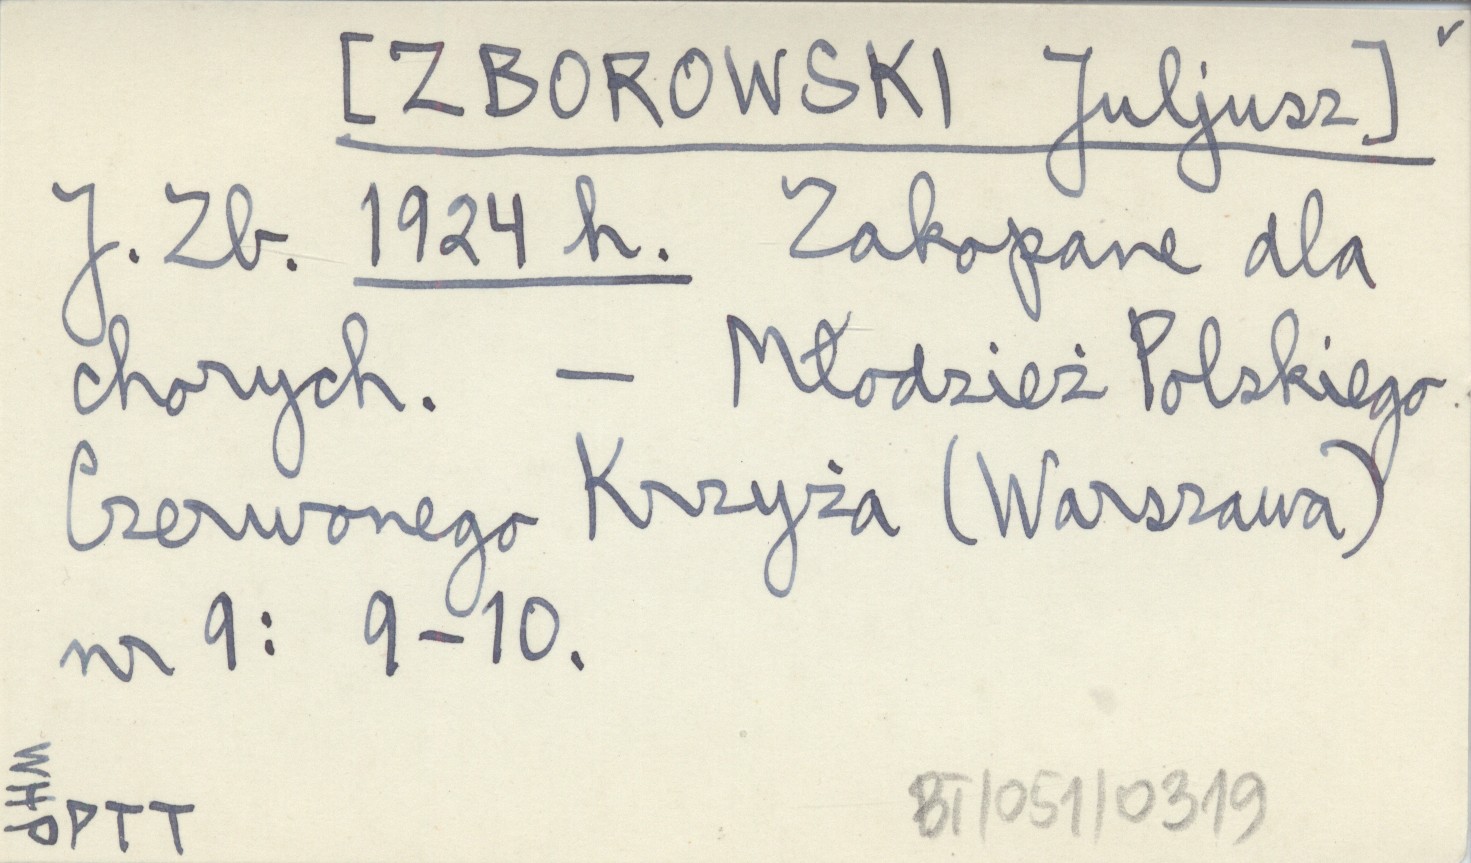 [ZBOROWSKI Juljusz]
J. Zb. 1924 h. Zakopane dla
chorych. — Młodzież Polskiego
Czerwonego Krzyża (Warszawa)
nr 9: 9–10.
WHP
PTT
BT/051/0319